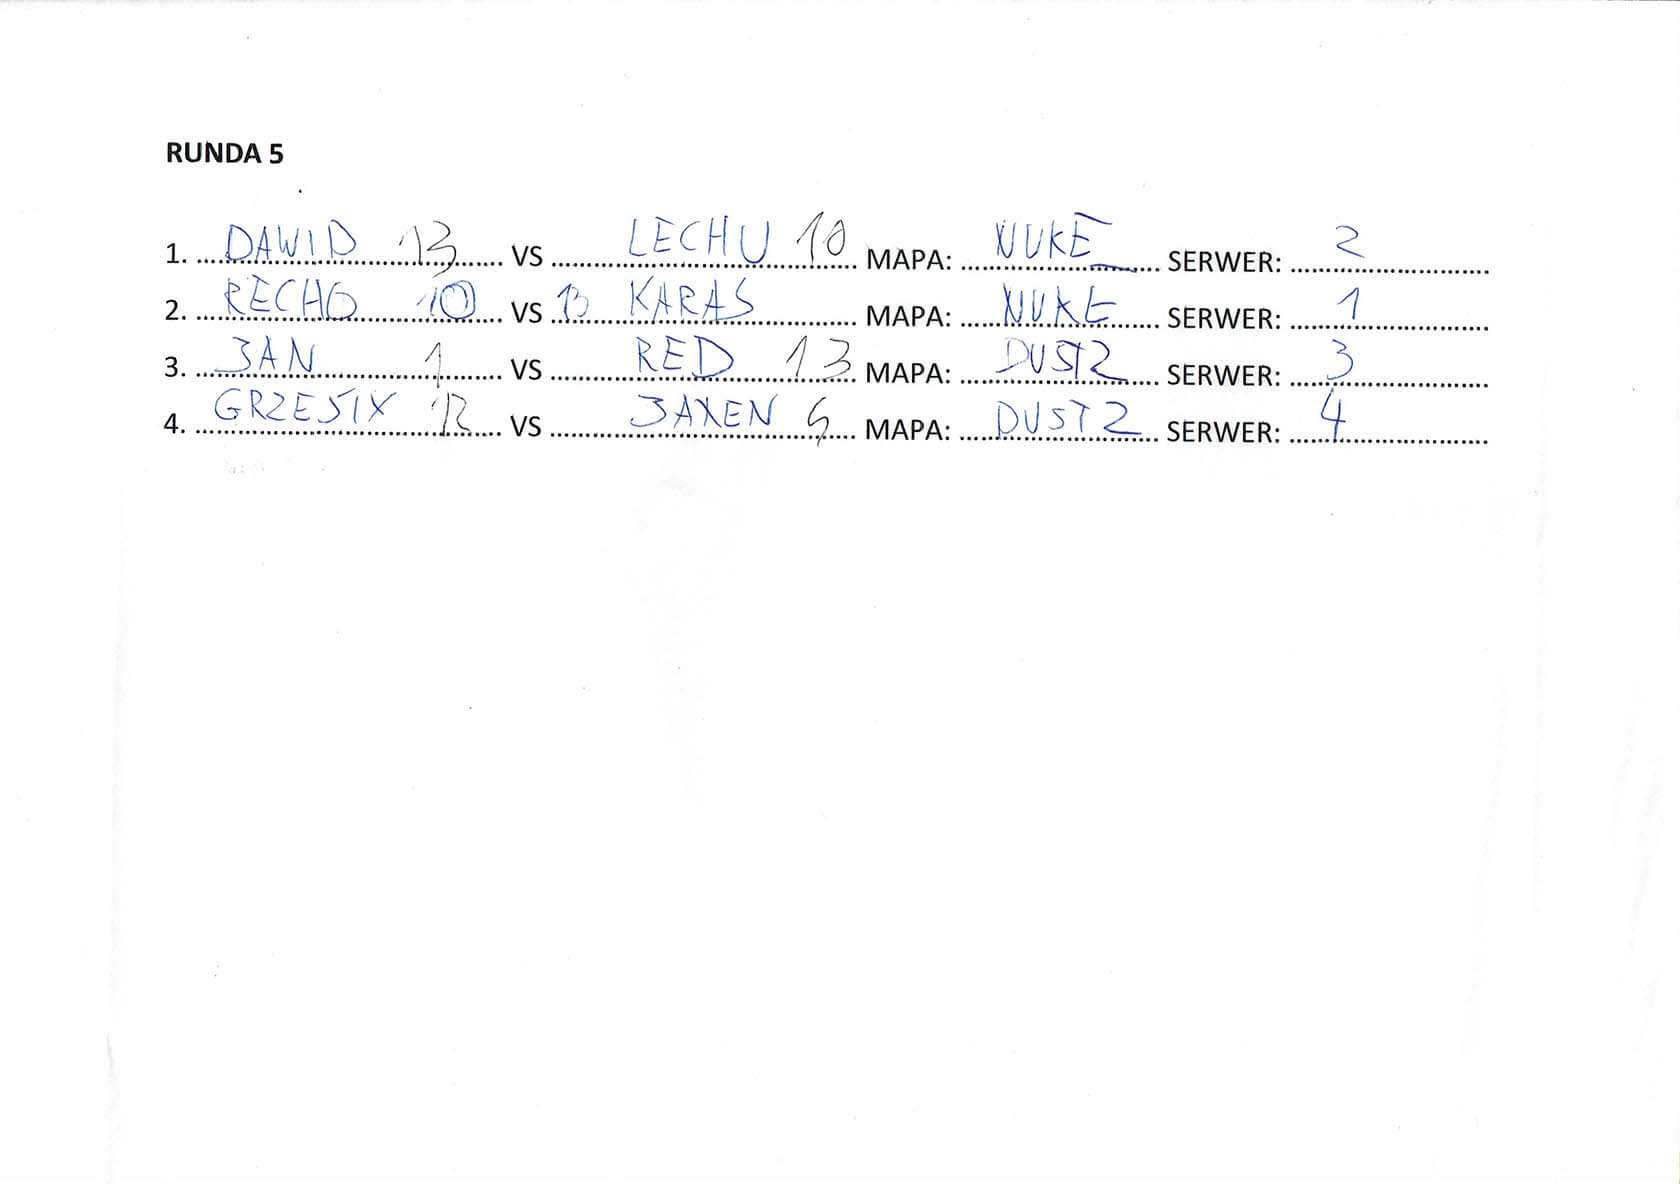 RUNDA 5
1. DAWID 13 VS LECHU 10 MAPA: NUKE SERWER: 2
2. RECHO 10 VS 13 KARAS MAPA: NUKE SERWER: 1
3. JAN 1 VS RED 13 MAPA: DUST2 SERWER: 3
4. GRZESIX VS JAXEN MAPA: DUST2 SERWER: 4